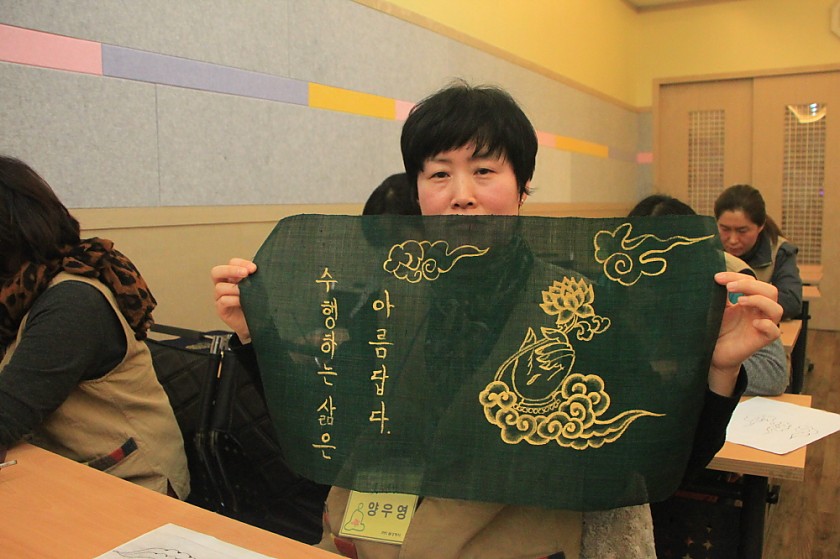 수행하는 삶은
아름답다.
양우영